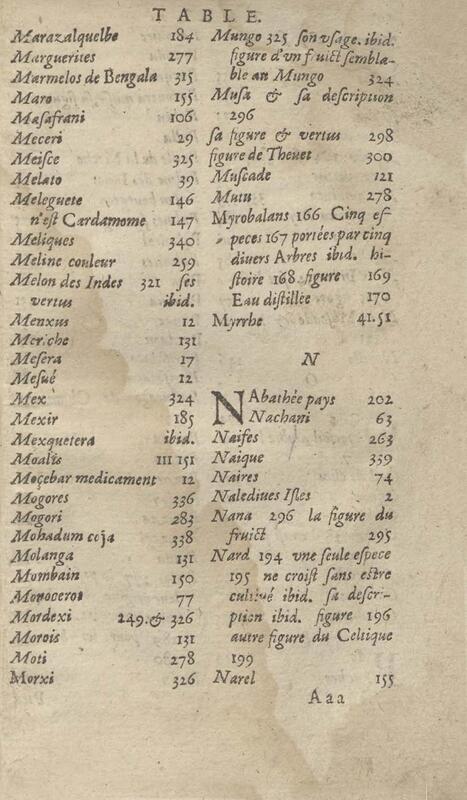 TABLE.
Marazalquelbe 184
Marguerites 277
Marmelos de Bengala 315
Maro 155
Masafrani 106
Meceri 29
Meisce 325
Melato 39
Meleguete 146
n'est Cardamome 147
Meliques 340
Meline couleur 259
Melon des Indes 321 ses
vertus ibid.
Menxus 12
Meriche 131
Mesera 17
Mesué 12
Mex 324
Mexir 185
Mexquetera ibid.
Moalis 111 151
Moçebar medicament 12
Mogores 336
Mogori 283
Mohadum coja 338
Molanga 131
Mombain 150
Monoceros 77
Mordexi 249. & 326
Morois 131
Moti 278
Morxi 326
Mungo 325 son vsage. ibid.
figure d'vn fruict sembla-
ble au Mungo 324
Musa & sa description
296
sa figure & vertus 298
figure de Thevet 300
Muscade 121
Mutu 278
Myrobalans 166 Cinq es-
peces 167 portées par cinq
divers Arbres ibid. hi-
stoire 168 figure 169
Eau distillée 170
Myrrhe 41.51
N
NAbathée pays 202
Nachani 63
Naifes 263
Naique 339
Naires 74
Naledives Isles 2
Nana 296 la figure du
fruict 295
Nard 194 vne seule espece
195 ne croist sans estre
cultiué ibid. sa descri-
ption ibid. figure 196
autre figure du Celtique
199
Narel 155
Aaa